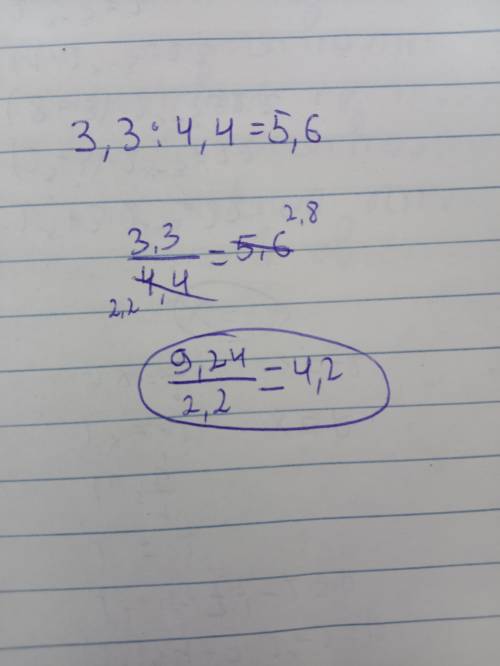 3,3:4,4=5,6
2,8
3,3/4,4=5,6
2,2
9,24/2,2=4,2